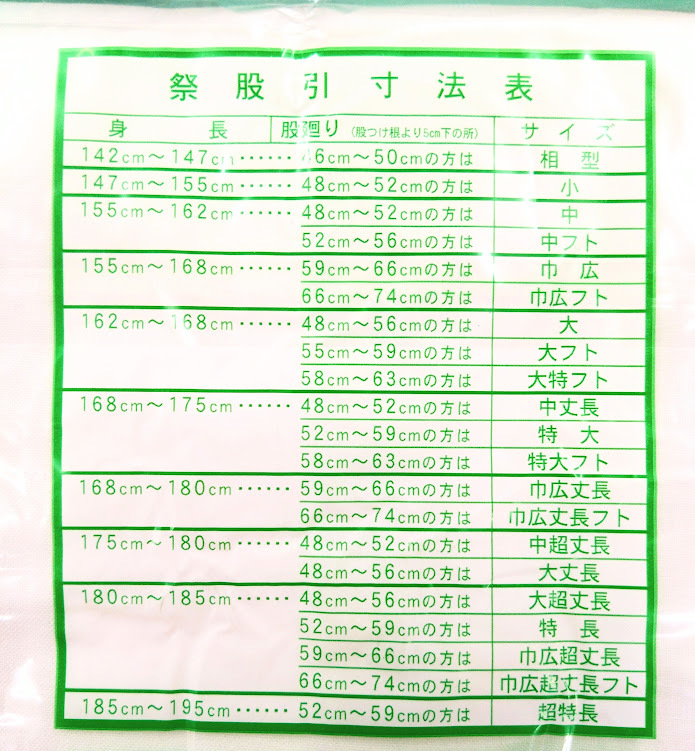 祭股引寸法表
身長 股廻り（股つけ根より5cm下の所） サイズ
142cm～147cm…… 46cm～50cmの方は 相型
147cm～155cm…… 48cm～52cmの方は 小
155cm～162cm…… 48cm～52cmの方は 中
52cm～56cmの方は 中フト
155cm～168cm…… 59cm～66cmの方は 巾広
66cm～74cmの方は 巾広フト
162cm～168cm…… 48cm～56cmの方は 大
55cm～59cmの方は 大フト
58cm～63cmの方は 大特フト
168cm～175cm…… 48cm～52cmの方は 中丈長
52cm～59cmの方は 特大
58cm～63cmの方は 特大フト
168cm～180cm…… 59cm～66cmの方は 巾広丈長
66cm～74cmの方は 巾広丈長フト
175cm～180cm…… 48cm～52cmの方は 中超丈長
48cm～56cmの方は 大丈長
180cm～185cm…… 48cm～56cmの方は 大超丈長
52cm～59cmの方は 特長
59cm～66cmの方は 巾広超丈長
66cm～74cmの方は 巾広超丈長フト
185cm～195cm…… 52cm～59cmの方は 超特長